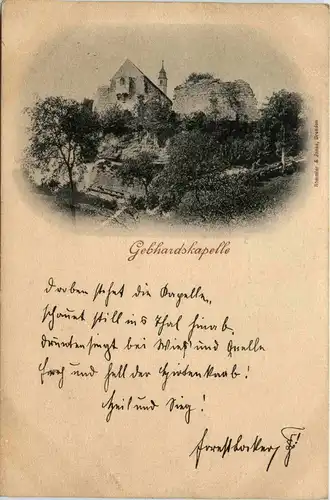 Gebhardskapelle
Roemmler & Jonas, Dresden
Droben stehet die Kapelle,
schauet still ins Thal hinab.
Drunten singt bei Wies' und Quelle
froh und hell der Hirtenknab!
Heil und Sieg!